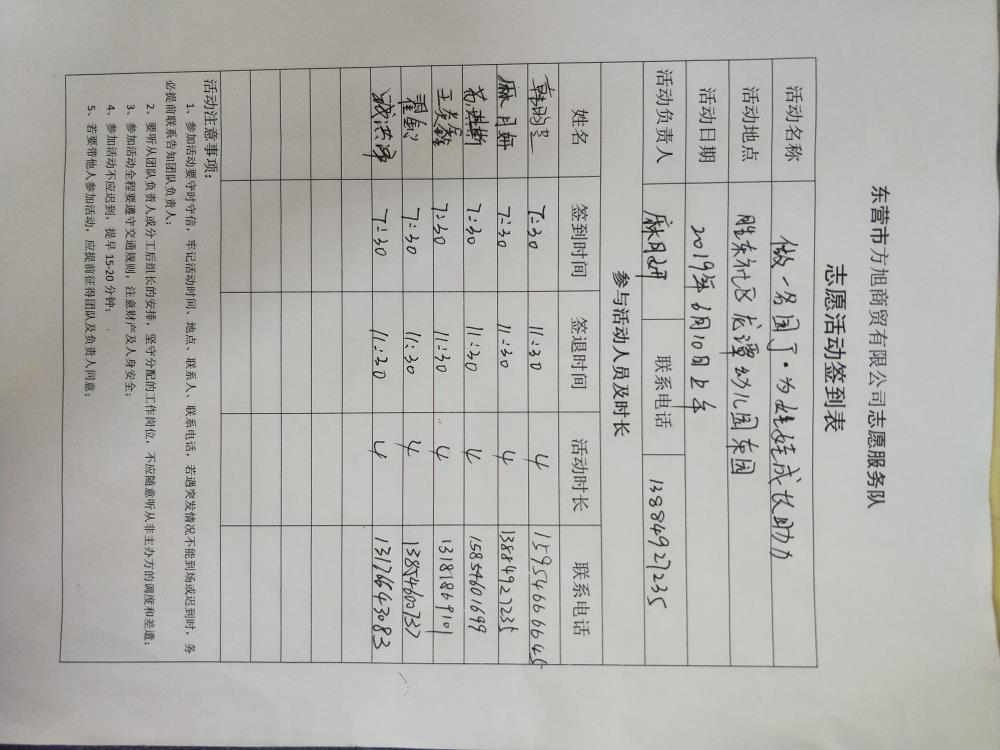 东营市方旭商贸有限公司志愿服务队
志愿活动签到表
活动名称 做一分园丁·为娃娃成长助力
活动地点 胜东社区龙潭幼儿园东园
活动日期 2019年6月10日上午
活动负责人 麻月妍 联系电话 13884927235
参与活动人员及时长
姓名 签到时间 签退时间 活动时长 联系电话
7:30 11:30 4 15954666645
麻月妍 7:30 11:30 4 13884927235
7:30 11:30 4 15854601699
7:30 11:30 4 13181869101
7:30 11:30 4
7:30 11:30 4 13176643083
活动注意事项:
1、参加活动要守时守信,牢记活动时间、地点、联系人、联系电话,若遇突发情况不能到场或迟到时,务
必提前联系告知团队负责人;
2、要听从团队负责人或分工后组长的安排,坚守分配的工作岗位,不应随意听从非主办方的调度和差遣;
3、参加活动全程要遵守交通规则,注意财产及人身安全;
4、参加活动不应迟到,提早 15-20 分钟;
5、若要带他人参加活动,应提前征得团队及负责人同意;